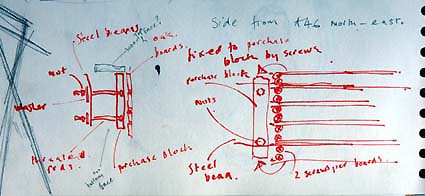 Side from A46 north-east.
Steel beams
oak
boards.
fixed to purchase
block by screws
nut
washer
purchase block
nuts
threaded
rods.
purchase block
Steel
beam.
2 screws per board.